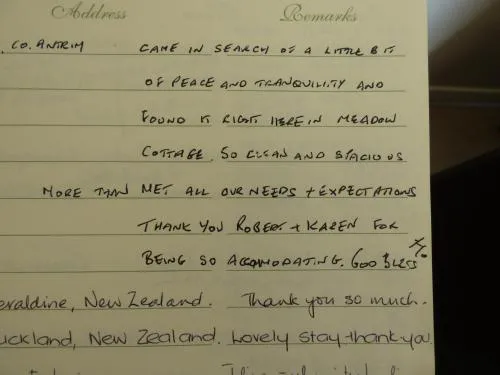 Address Remarks
, CO. ANTRIM CAME IN SEARCH OF A LITTLE BIT
OF PEACE AND TRANQUILITY AND
FOUND IT RIGHT HERE IN MEADOW
COTTAGE, SO CLEAN AND SPACIOUS
MORE THAN MET ALL OUR NEEDS + EXPECTATIONS
THANK YOU ROBERT + KAREN FOR
BEING SO ACCOMODATING. GOD BLESS
eraldine, New Zealand. Thank you so much.
uckland, New Zealand. Lovely stay-thank-you.